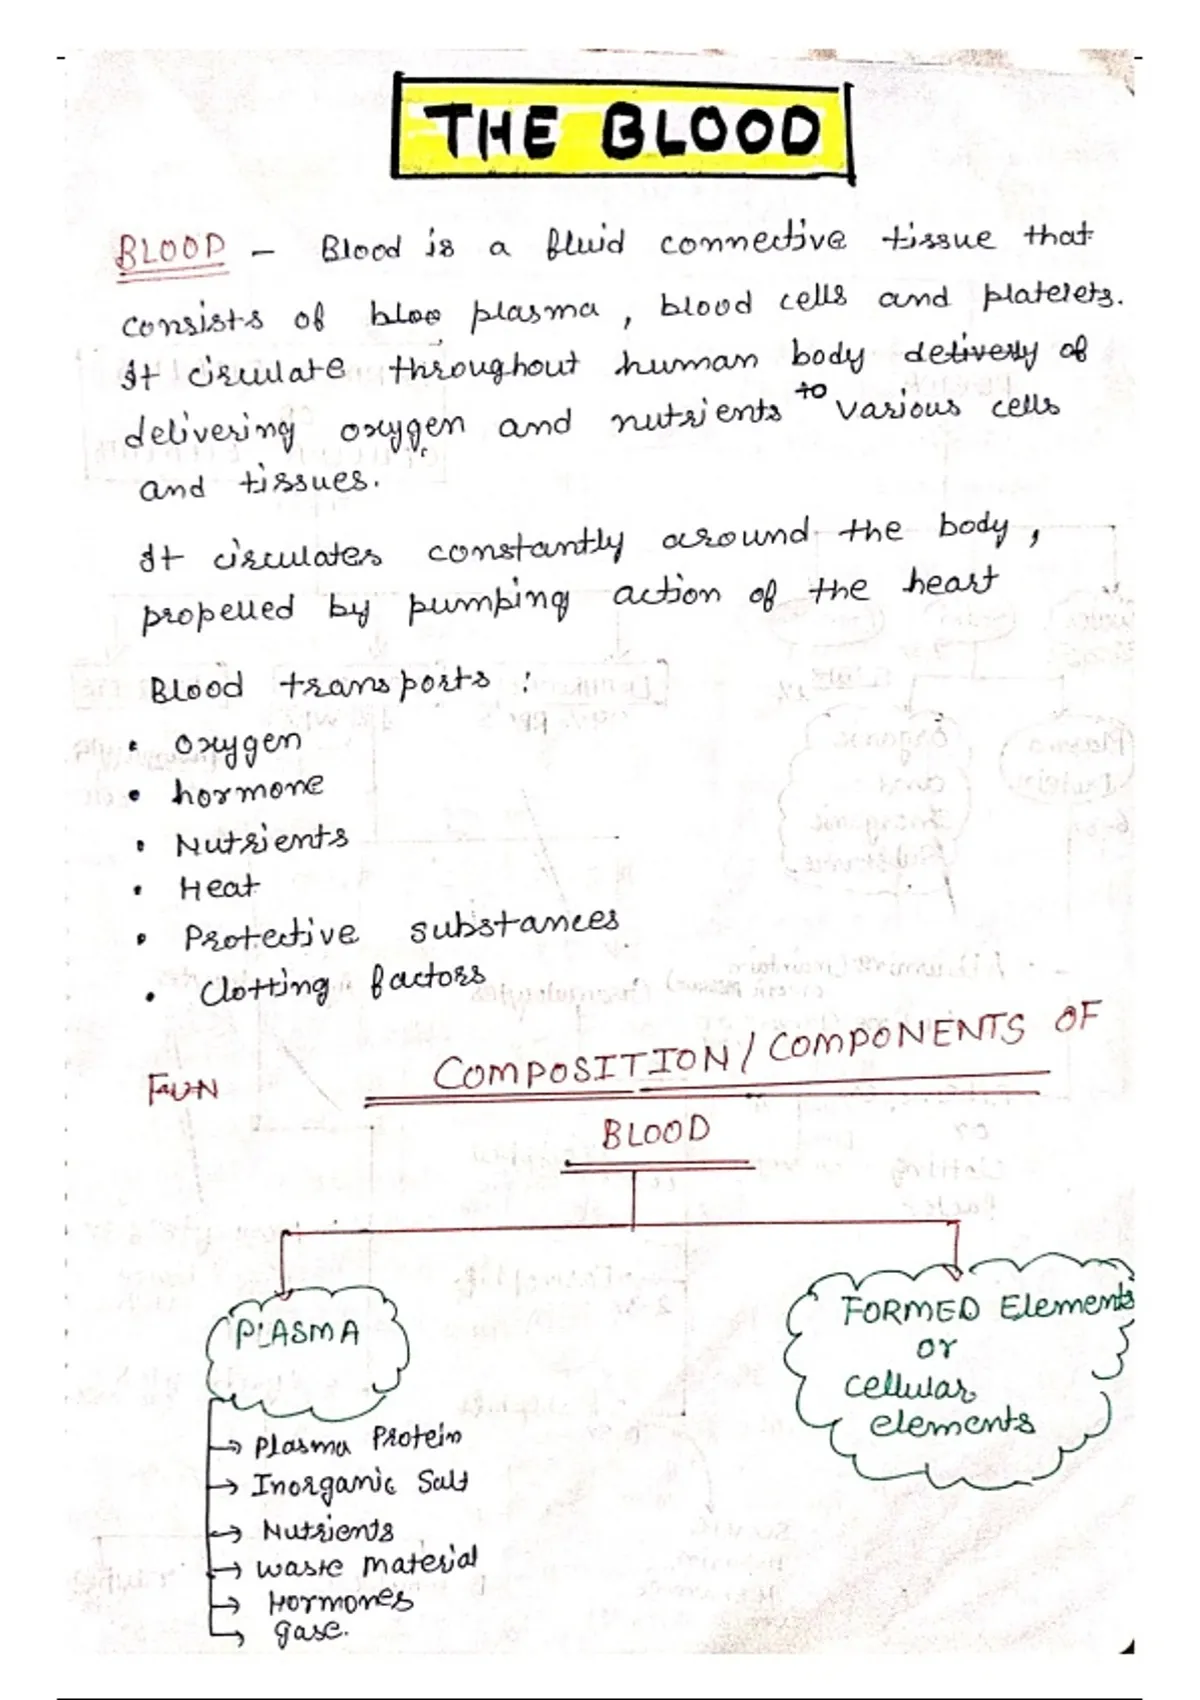 THE BLOOD
BLOOD - Blood is a fluid connective tissue that
consists of bloo plasma, blood cells and platelets.
It circulate throughout human body delivery of
delivering oxygen and nutrients to various cells
and tissues.
It circulates constantly around the body,
propelled by pumping action of the heart
Blood transports :
• oxygen
• hormone
• Nutrients
• Heat
• Protective substances
• Clotting factors
COMPOSITION/COMPONENTS OF
BLOOD
PLASMA
FORMED Elements
or
cellular
elements
→ Plasma Protein
→ Inorganic Salt
→ Nutrients
→ waste material
→ Hormones
→ gase.